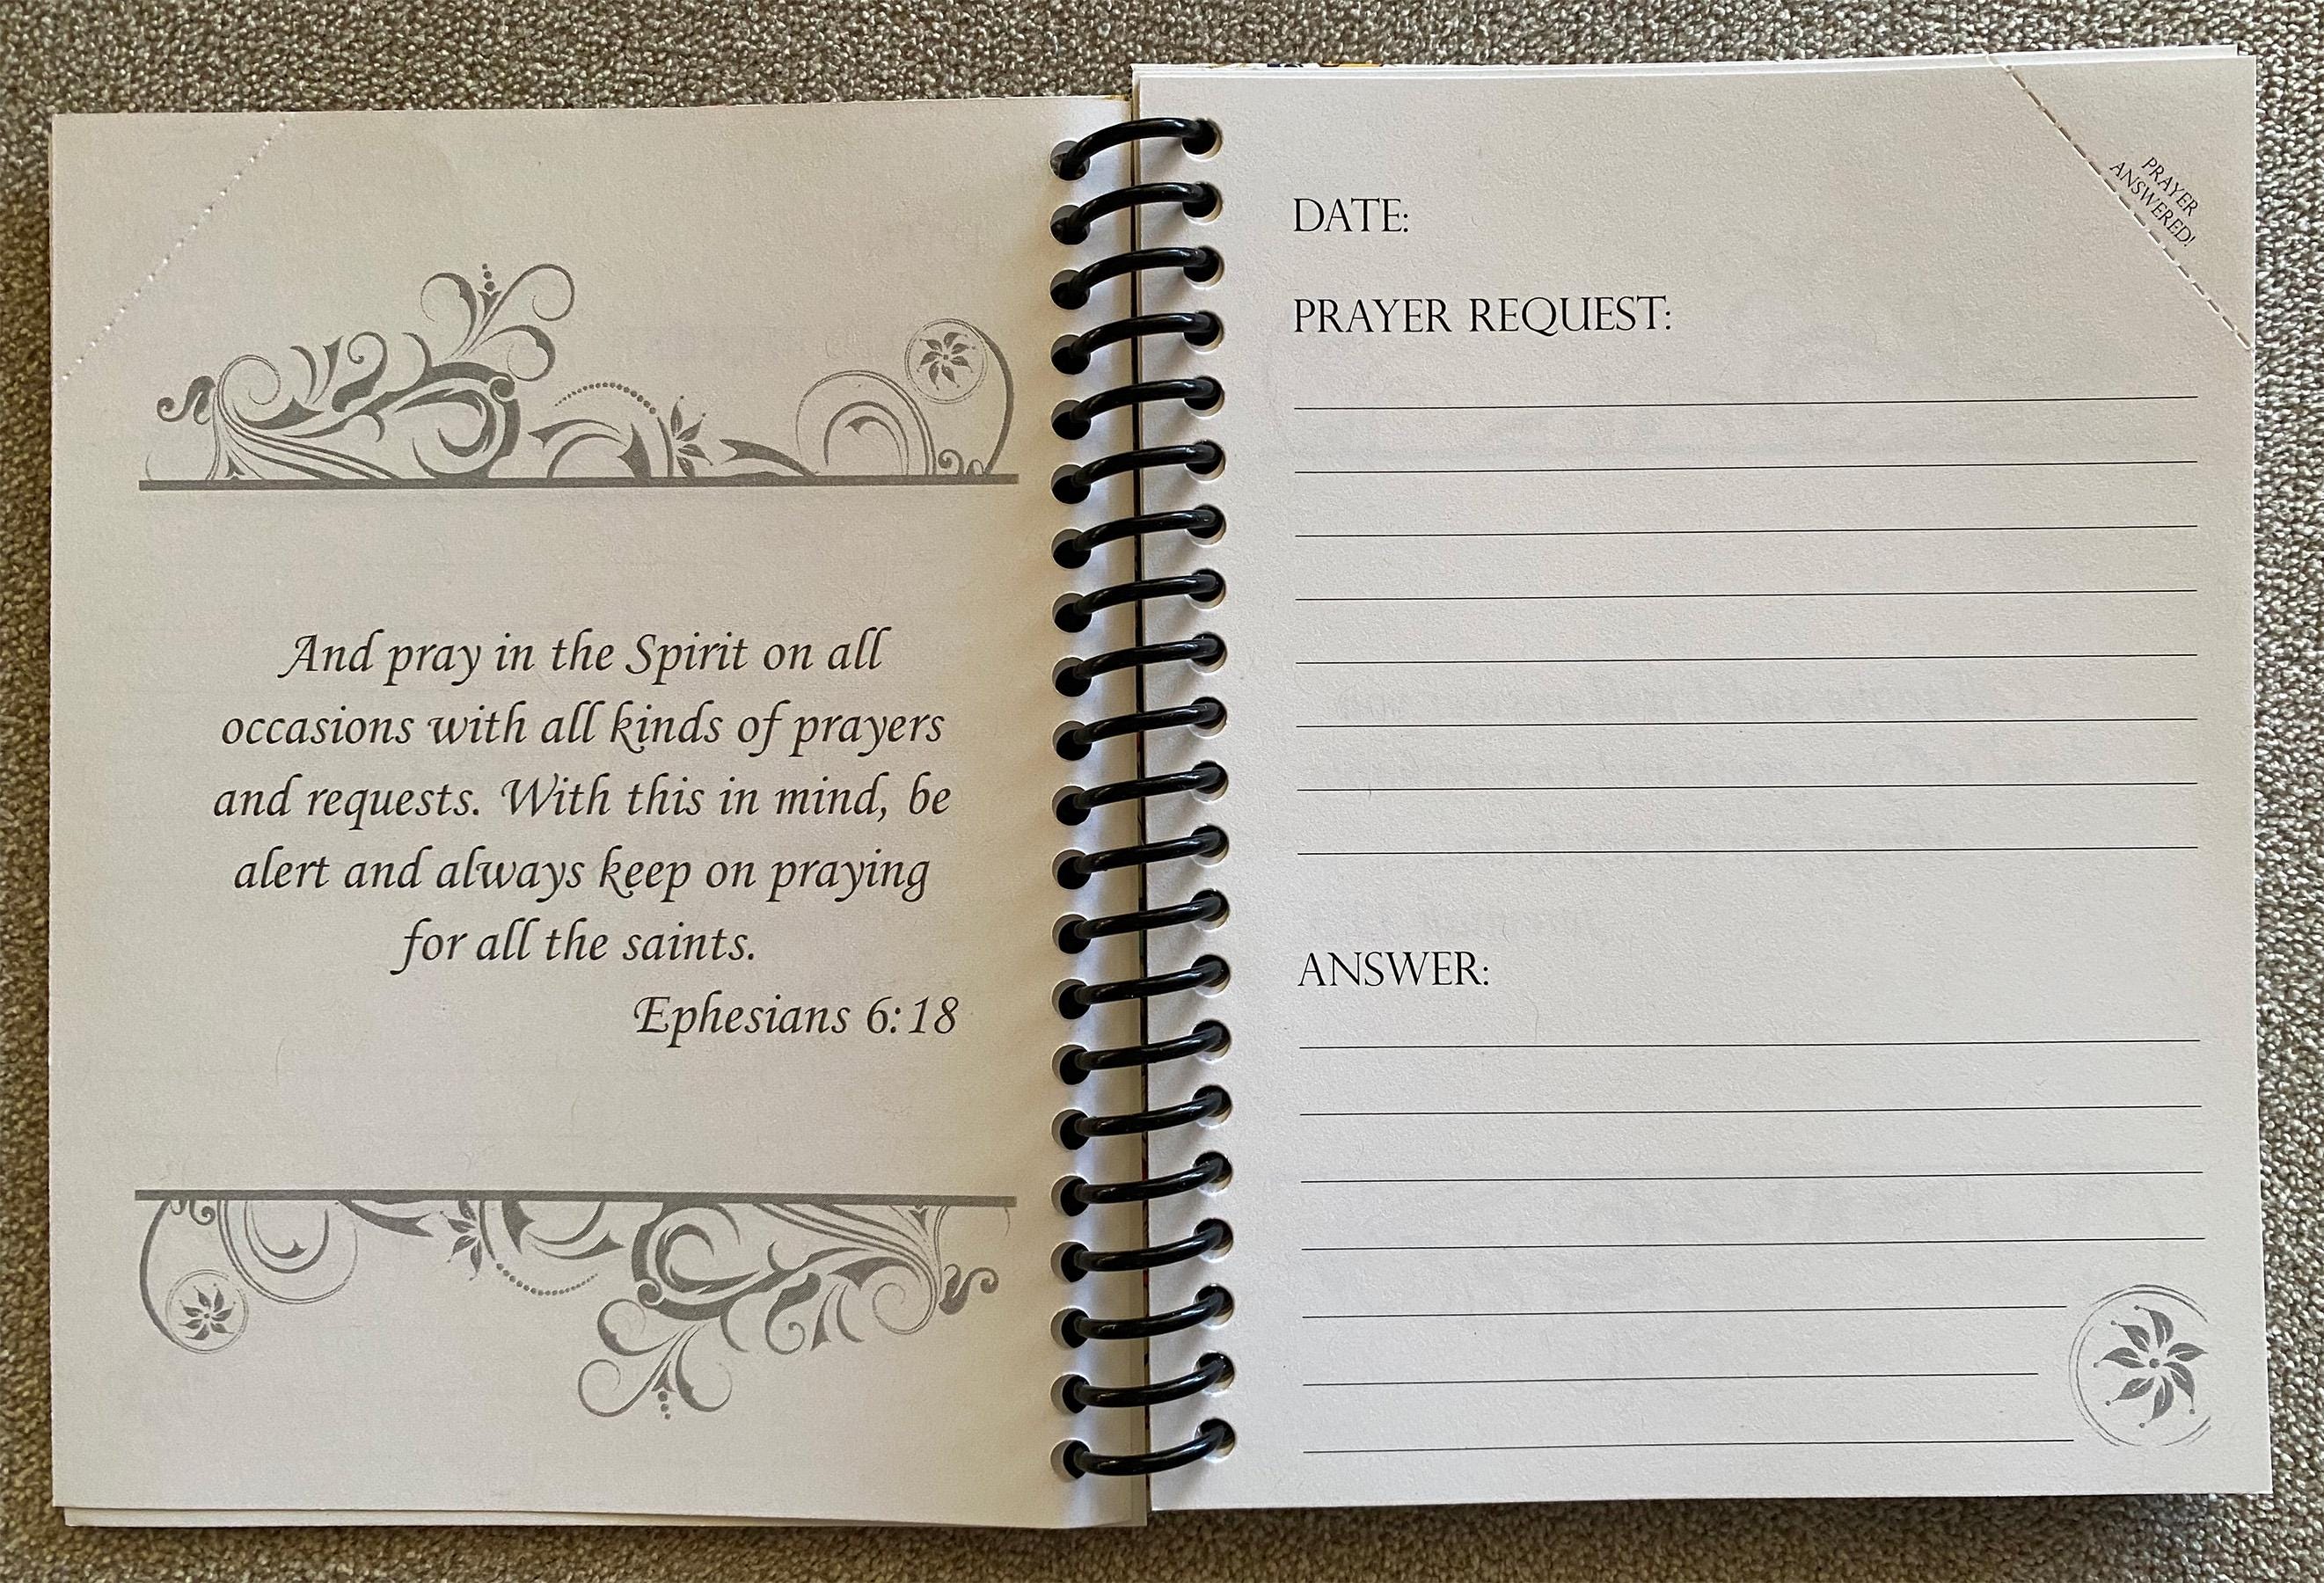 And pray in the Spirit on all
occasions with all kinds of prayers
and requests. With this in mind, be
alert and always keep on praying
for all the saints.
Ephesians 6:18
PRAYER
ANSWERED!
DATE:
PRAYER REQUEST:
ANSWER: